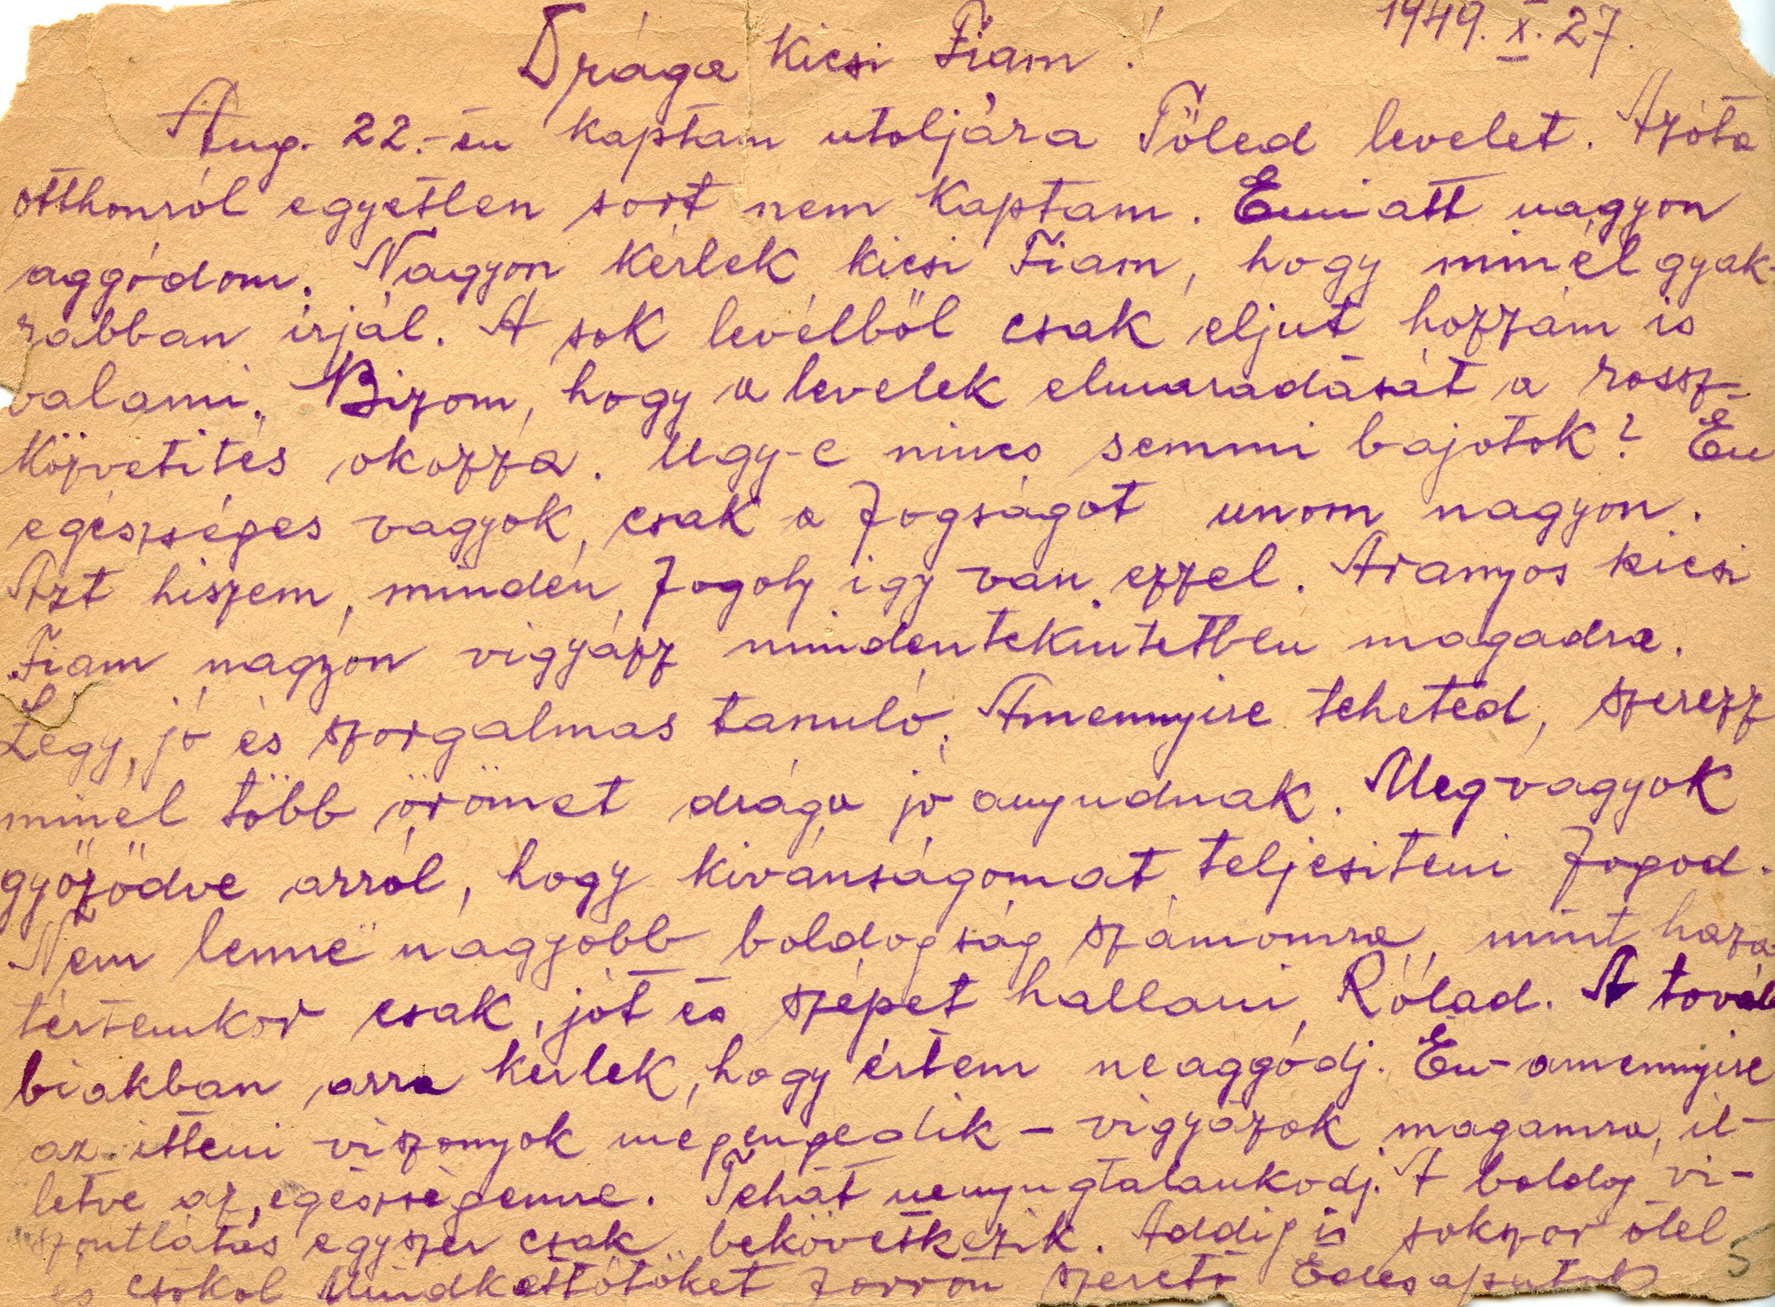 1949. X. 27.
Drága kicsi Fiam!
Aug. 22.-én kaptam utoljára Tőled levelet. Azóta
otthonról egyetlen sort nem kaptam. Emiatt nagyon
aggódom. Nagyon kérlek kicsi Fiam, hogy minél gyak-
rabban írjál. A sok levélből csak eljut hozzám is
valami. Bizom, hogy a levelek elmaradását a rossz-
közvetítés okozza. Ugy-e nincs semmi bajotok? Én
egészséges vagyok, csak a fogságot unom nagyon.
Azt hiszem, minden fogoly igy van ezzel. Aranyos kicsi
Fiam nagyon vigyázz mindentekintetben magadra.
Légy, jó és szorgalmas tanuló. Amennyire teheted, szerezz
minél több örömet drága jó anyudnak. Megvagyok
győződve arról, hogy kivánságomat teljesiteni fogod.
Nem lenne nagyobb boldogság számomra, mint haza-
tértemkor csak jót és szépet hallani Rólad. A továb
biakban arra kérlek, hogy értem neaggódj. Én - amennyire
az itteni viszonyok megengedik - vigyázok magamra, il-
letve az egészségemre. Tehát nenyugtalankodj. A boldog vi-
szontlátás egyszer csak bekövetkezik. Addig is sokszor ölel
és csókol Mindkettőtöket forrón szerető Édesapátok
5